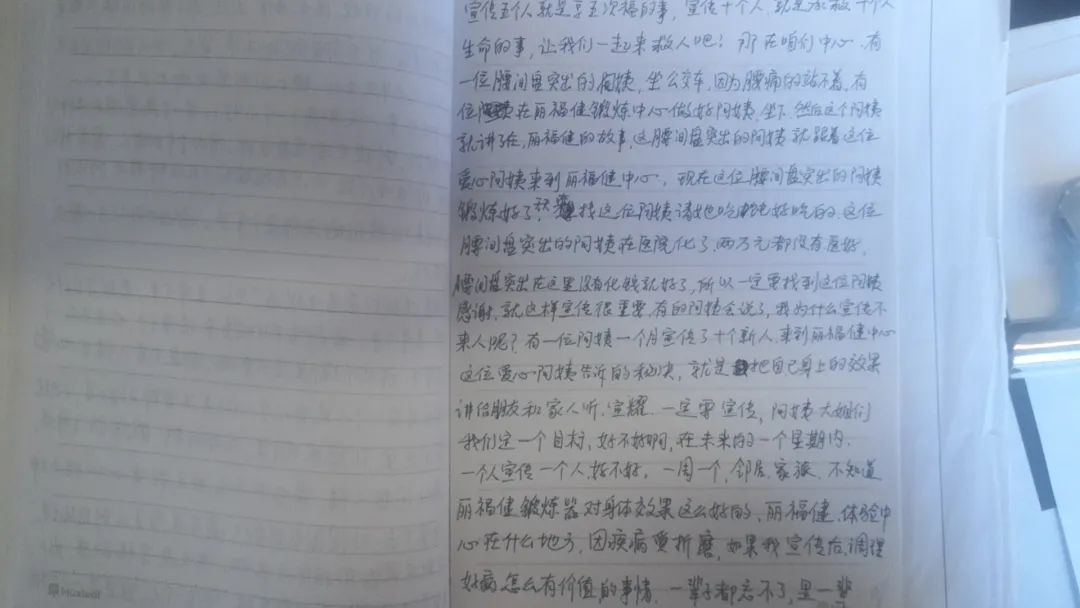 宣传五个人就是享五次福的事，宣传十个人，就是承救十个人
生命的事，让我们一起来救人吧！那在咱们中心，有
一位腰间盘突出的阿姨，坐公交车，因为腰痛的站不着，有
位阿姨在丽福健锻炼中心做好阿姨，坐下，然后这个阿姨
就讲了在，丽福健的故事，这腰间盘突出的阿姨就跟着这位
爱心阿姨来到丽福健中心，现在这位腰间盘突出的阿姨
锻炼好了，找这位阿姨请她吃好吃的，这位
腰间盘突出的阿姨在医院化了，两万元都没有医好，
腰间盘突出在这里没有化钱就好了，所以一定要找到这位阿姨
感谢，就这样宣传很重要，有的阿姨会说了，我为什么宣传不
来人呢？有一位阿姨一个月宣传了十个新人来到丽福健中心
这位爱心阿姨告诉的秘决，就是把自己身上的效果
讲给朋友和家人听，宣耀，一定要宣传，阿姨大姐们
我们定一个目标，好不好啊，在未来的一个星期内，
一个人宣传一个人，好不好，一周一个，邻居，家族，不知道
丽福健锻炼器对身体效果这么好的，丽福健，体验中
心在什么地方，因疾病受折磨，如果我宣传后，调理
好病，怎么有价值的事情，一辈子都忘不了，是一辈